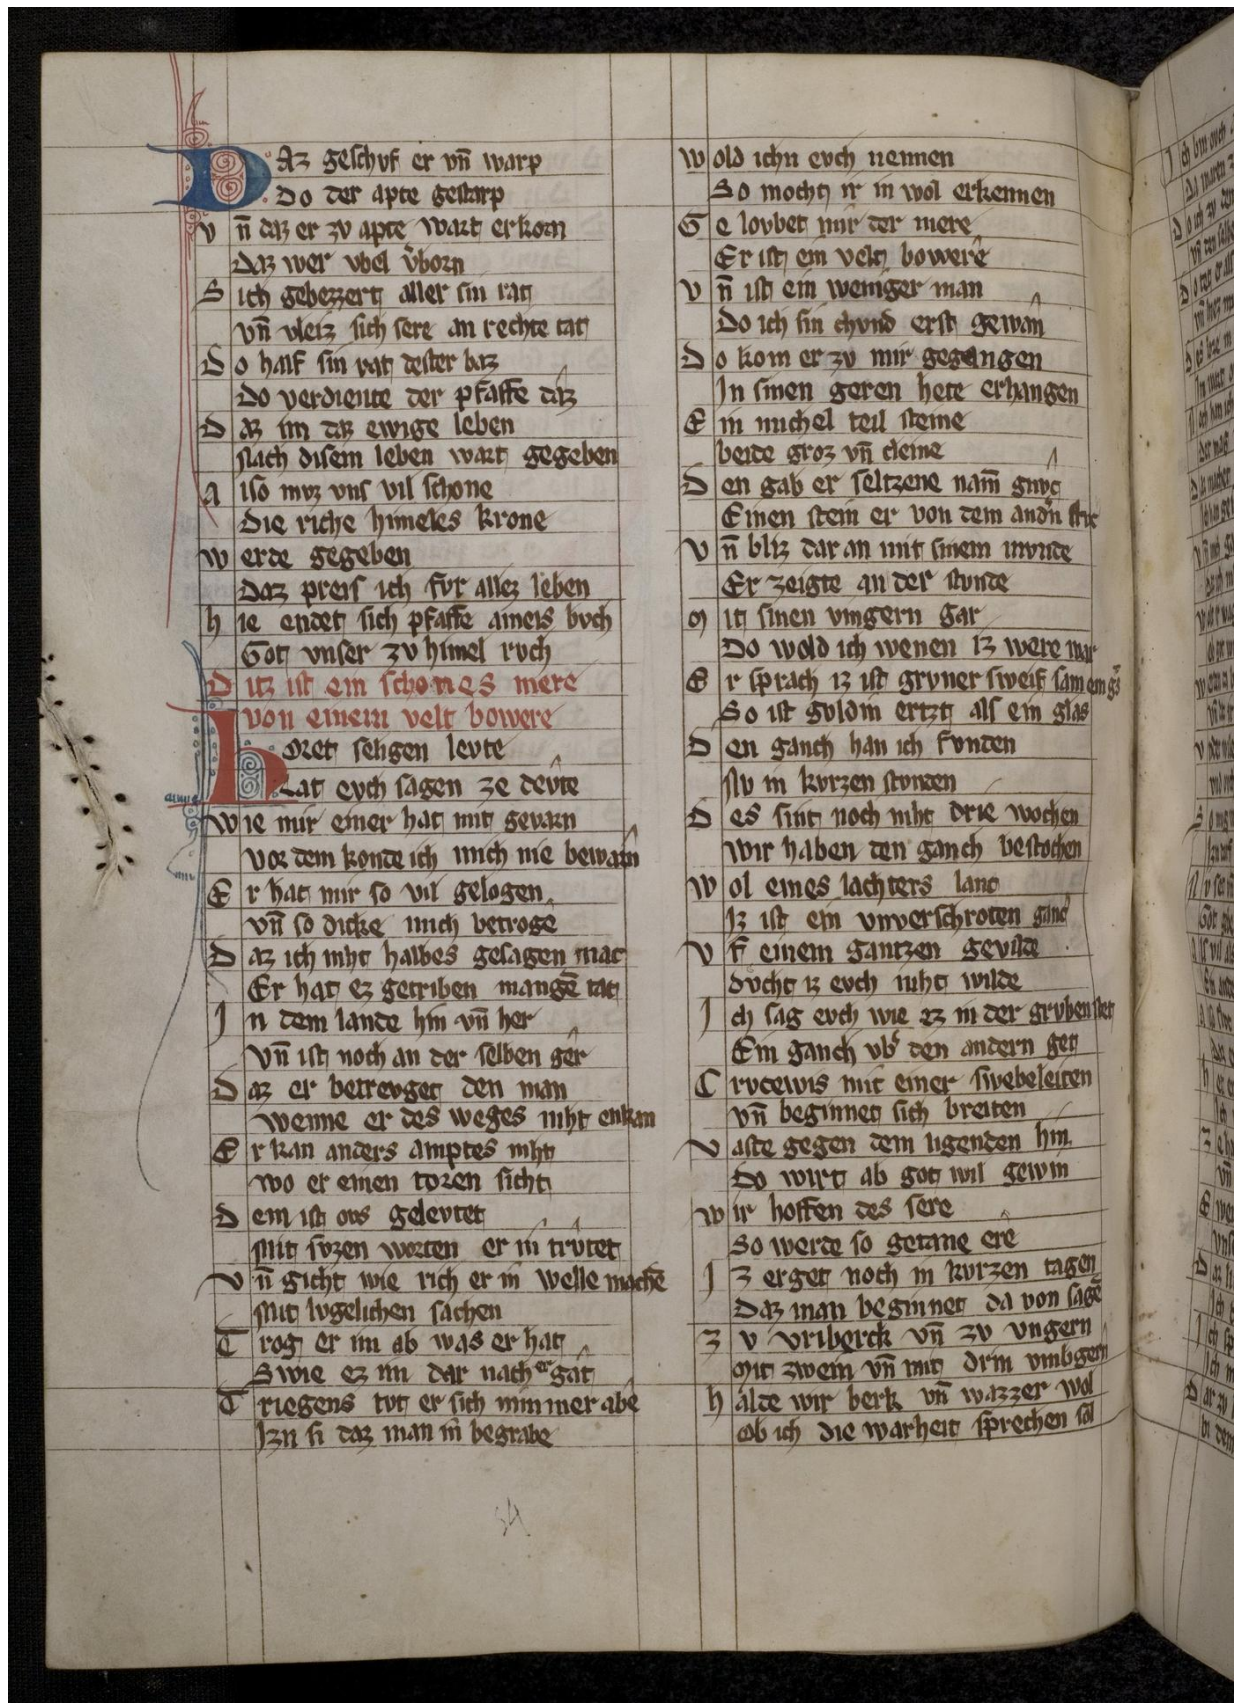 Daz geschvf er vn̄ warp
Do der apte gestarp
vn̄ daz er zv apte wart erkorn
Daz wer vbel v̓born
Sich gebezzert aller sin rat
vn̄ vleiz sich sere an rechte tat
Do half sin rat dester baz
Do verdiente der pfaffe daz
Daz im daz ewige leben
Nach disem leben wart gegeben
Also mvz vns vil schone
Die riche himeles krone
werde gegeben
Daz preis ich fvr allez leben
hie endet sich pfaffe ameis bvch
Got vnser zv himel rvch
Ditz ist ein schones mere
von einem velt bowere
Horet seligen levte
Lat evch sagen ze devte
wie mir einer hat mit gevarn
vor dem konde ich mich nie bewarn
Er hat mir so vil gelogen
vn̄ so dicke mich betrogē
Daz ich niht halbes gesagen mac
Er hat ez getriben mangē tac
In dem lande hin vn̄ her
vn̄ ist noch an der selben ger
Daz er betrevget den man
wenne er des weges niht enkan
Er kan anders amptes niht
wo er einen toren sicht
Dem ist ovs gelevtet
Mit svzen worten er in trvtet
vn̄ gicht wie rich er in welle machē
Mit lvgelichen sachen
Trog er im ab was er hat
Swie ez im dar nach ergat
Triegens tvt er sich nimmer abe
Izn si daz man in begrabe
wold ichn evch nennen
So mocht ir in wol erkennen
Gelovbet mir der mere
Er ist ein velt bowere
vn̄ ist ein weniger man
Do ich sin chvnd erst gewan
Do kom er zv mir gegangen
In sinen geren hete erhangen
Ein michel teil steine
beide groz vn̄ cleine
Den gab er seltzene nam̄ gnvc
Einen stein er von dem andn̄ slvc
vn̄ bliz dar an mit sinem mvnde
Er zeigte an der stvnde
Mit sinen vingern gar
Do wold ich wenen iz were war
Er sprach iz ist grvner sweif sam ein gͣs
So ist gvldin ertzt als ein glas
Den ganch han ich fvnden
Nv in kvrzen stvnden
Des sint noch niht drie wochen
wir haben den ganch bestochen
wol eines lachters lanc
Iz ist ein vnverschroten ganc
vf einem gantzen gevilde
dvcht iz evch niht wilde
Ich sag evch wie ez in der grvben stet
Ein ganch vb̓ den andern get
Crvcewis mit einer swebeleiten
vn̄ beginnet sich breiten
vaste gegen dem ligenden hin
Do wirt ab got wil gewin
wir hoffen des sere
So werde so getane ere
Iz erget noch in kvrzen tagen
Daz man beginnet da von sagē
Zv vriberck vn̄ zv vngern
Mit zwein vn̄ mit drin vmbgern
halde wir berk vn̄ wazzer wol
Ob ich die warheit sprechen sol